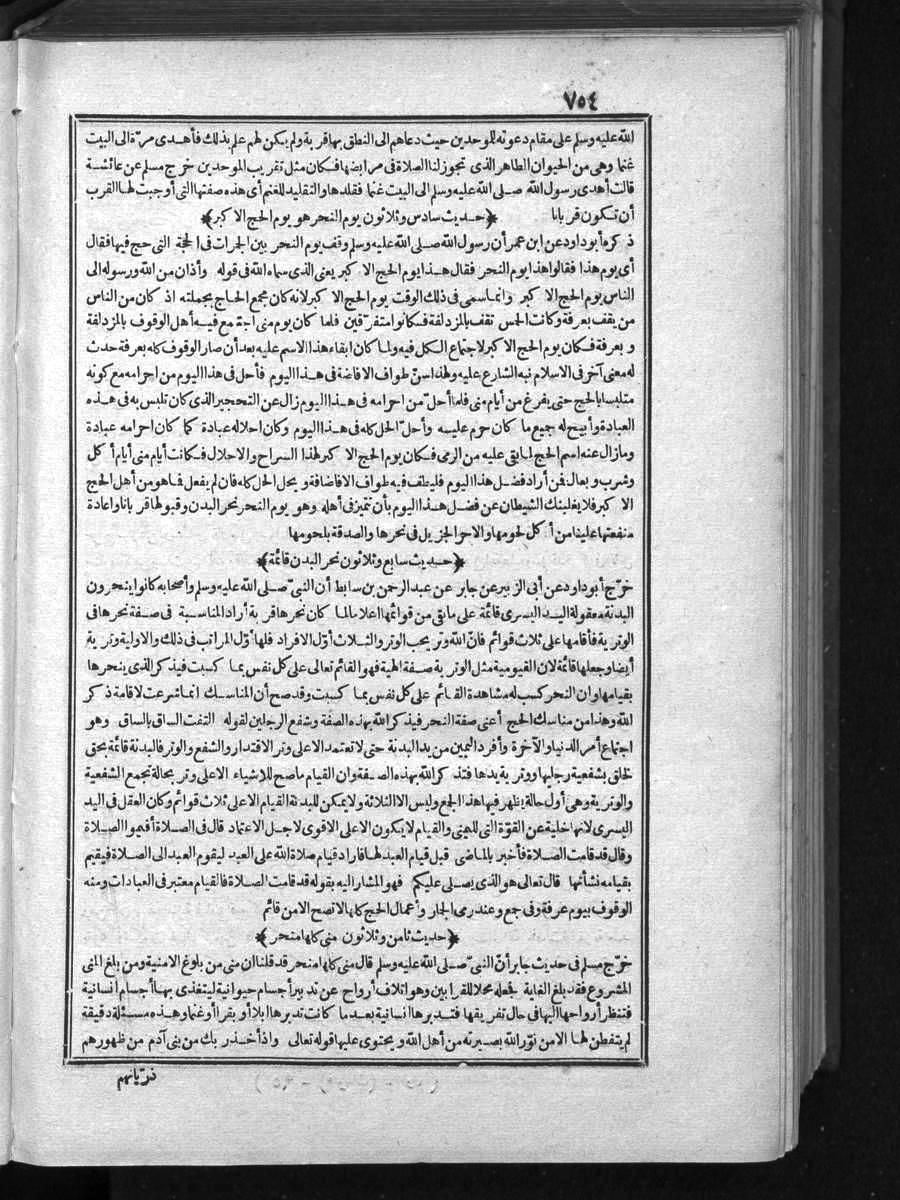 ٧٥٤
الله عليه وسلم على مقام دعوته للموحدين حيث دعاهم الى النطق بها قربة ولم يكن لهم علم بذلك فأهدى مرّة الى البيت
غنما وهى من الحيوان الطاهر الذى تجوز لنا الصلاة فى مرابضها فكان مثل تقريب الموحدين خرّج مسلم عن عائشة
قالت أهدى رسول الله صلى الله عليه وسلم الى البيت غنما فقلدها والتقليد للغنم أى هذه صفتها التى أوجبت لها القرب
أن تكون قربانا ﴿حديث سادس وثلاثون يوم النحر هو يوم الحج الاكبر﴾
ذكره أبو داود عن ابن عمر أن رسول الله صلى الله عليه وسلم وقف يوم النحر بين الجرات فى الحجة التى حج فيها فقال
أى يوم هذا فقالوا هذا يوم النحر فقال هذا يوم الحج الاكبر يعنى الذى سماه الله فى قوله وأذان من الله ورسوله الى
الناس يوم الحج الاكبر وانما سمى فى ذلك الوقت يوم الحج الاكبر لانه كان مجمع الحاج بجملته اذ كان من الناس
من يقف بعرفة وكانت الحمس تقف بالمزدلفة فكانوا متفرّقين فلما كان يوم منى اجتمع فيه أهل الوقوف بالمزدلفة
وبعرفة فكان يوم الحج الاكبر لاجتماع الكل فيه ولما كان ابقاء هذا الاسم عليه بعد أن صار الوقوف كله بعرفة حدث
له معنى آخر فى الاسلام نبه الشارع عليه ولهذا سنّ طواف الافاضة فى هذا اليوم فأحل فى هذا اليوم من احرامه مع كونه
متلبسا بالحج حتى يفرغ من أيام منى فلما أحلّ من احرامه فى هذا اليوم زال عن التحجير الذى كان تلبس به فى هذه
العبادة وأبيح له جميع ما كان حرم عليه وأحلّ الحل كله فى هذا اليوم وكان احلاله عبادة كما كان احرامه عبادة
وما زال عنه اسم الحج لما بقى عليه من الرمى فكان يوم الحج الاكبر لهذا السراح والاحلال فكانت أيام منى أيام أكل
وشرب وبعال فمن أراد فضل هذا اليوم فليطف فيه طواف الافاضة ويحل الحل كله فان لم يفعل فما هو من أهل الحج
الاكبر فلا يغلبنك الشيطان عن فضل هذا اليوم بأن تتميز فى أهله وهو يوم النحر نحر البدن وقبولها قربانا واعادة
منفعتها علينا من أكل لحومها والاجر الجزيل فى نحرها والصدقة بلحومها
﴿حديث سابع وثلاثون نحر البدن قائمة﴾
خرّج أبو داود عن أبى الزبير عن جابر عن عبد الرحمن بن سابط أن النبىّ صلى الله عليه وسلم وأصحابه كانوا ينحرون
البدنة معقولة اليد اليسرى قائمة على ما بقى من قوائمها اعلاما لما كان نحرها قربة أراد المناسبة فى صفة نحرها فى
الوترية فأقامها على ثلاث قوائم فانّ الله وتر يحب الوتر والثلاث أوّل الافراد فلها أوّل المراتب فى ذلك والاولية وترية
أيضا وجعلها قائمة لان القيومية مثل الوترية صفة الهية فهو القائم تعالى على كل نفس بما كسبت فيذكر الذى ينحرها
بقيامها وان النحر كسب له مشاهدة القائم على كل نفس بما كسبت وقد صح أن المناسك انما شرعت لاقامة ذكر
الله وهذا من مناسك الحج أعنى صفة النحر فيذكر الله بهذه الصفة وشفع الرجلين لقوله التفت الساق بالساق وهو
اجتماع أمر الدنيا والآخرة وأفرد اليمين من يد البدنة حتى لا تعتمد الا على وتر الاقتدار والشفع والوتر فالبدنة قائمة بحق
لخلق بشفعية رجليها ووترية يدها فتذكر الله بهذه الصفة وان القيام ما صح للاشياء الا على وتر بحالة تجمع الشفعية
والوترية وهى أول حالة يظهر فيها هذا الجمع وليس الا الثلاثة ولا يمكن للبدنة القيام الا على ثلاث قوائم وكان العقل فى اليد
اليسرى لانها خلية عن القوّة التى لليمنى والقيام لا يكون الا على الاقوى لاجل الاعتماد قال فى الصلاة أقيموا الصلاة
وقال قد قامت الصلاة فأخبر بالماضى قبل قيام العبد لها فاراد قيام صلاة الله على العبد ليقوم العبد الى الصلاة فيقيم
بقيامه نشأتها قال تعالى هو الذى يصلى عليكم فهو المشار اليه بقوله قد قامت الصلاة فالقيام معتبر فى العبادات ومنه
الوقوف بيوم عرفة وفى جمع وعند رمى الجار وأعمال الحج كلها لا تصح الا من قائم
﴿حديث ثامن وثلاثون منى كلها منحر﴾
خرّج مسلم فى حديث جابر أنّ النبىّ صلى الله عليه وسلم قال منى كلها منحر قد قلنا ان منى من بلوغ الامنية ومن بلغ المنى
المشروع فقد بلغ الغاية فجعله محلا للقرابين وهو اتلاف أرواح عن تدبير أجسام حيوانية ليتغذى بها أجسام انسانية
فتنظر أرواحها اليها فى حال تفريقها فتدبرها انسانية بعد ما كانت تدبرها ابلا أو بقرا أو غنما وهذه مسئلة دقيقة
لم يتفطن لها الا من نوّر الله بصيرته من أهل الله ويحتوى عليها قوله تعالى واذ أخذ ربك من بنى آدم من ظهورهم
ذرّياتهم